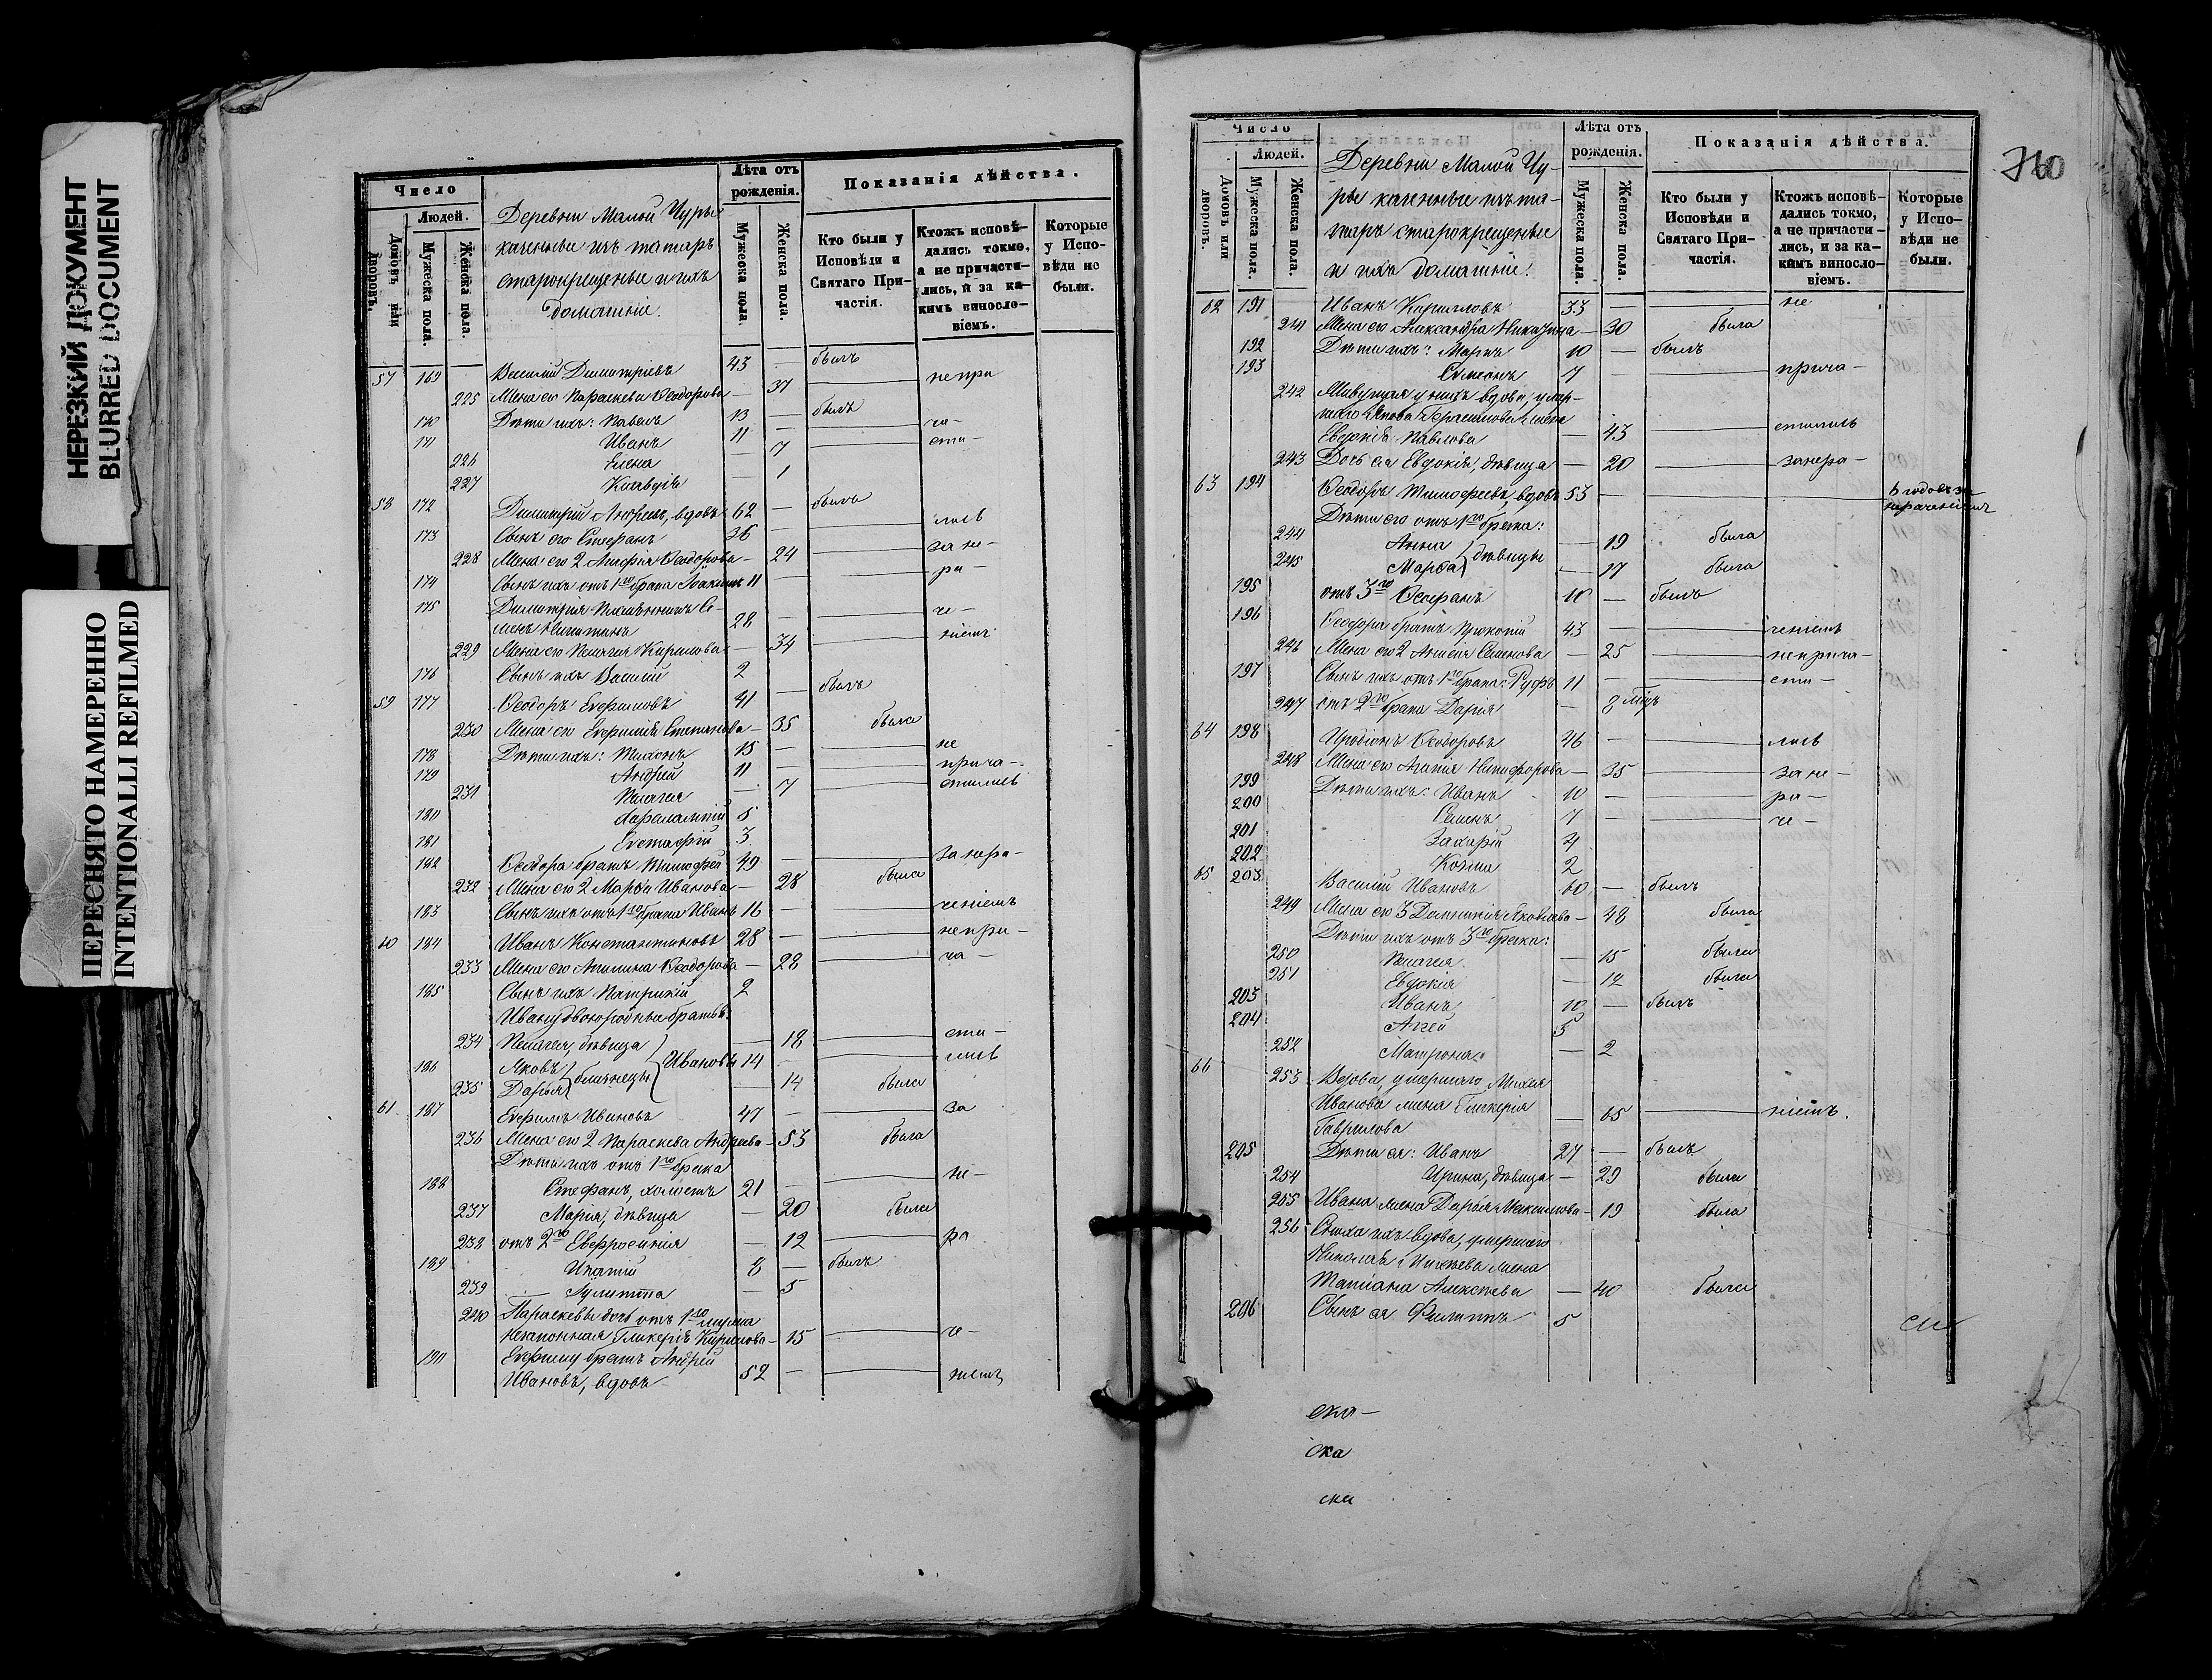 НЕРЕЗКИЙ ДОКУМЕНТ
BLURRED DOCUMENT
ПЕРЕСНЯТО НАМЕРЕННО
INTENTIONALLI REFILMED
Число
Людей.
Домовъ или дворовъ.
Мужеска пола.
Женска пола.
Деревни Малой Чуры
казенные изъ татаръ
старокрещеные и ихъ
домашніе.
Лѣта отъ рожденія.
Мужеска пола.
Женска пола.
Показанія дѣйства.
Кто были у Исповѣди и Святаго Причастія.
Ктожъ исповѣдались токмо, а не причастились, и за какимъ винословіемъ.
Которые у Исповѣди не были.
57 169 Василій Димитріевъ 43 — былъ
225 Жена его Параскева Ѳеодорова — 37 непри
170 Дѣти ихъ: Павелъ 13 — былъ
171 Иванъ 11 — ча-
226 Елена — 7 сти-
227 Клавдія — 1
58 172 Димитрій Андреевъ, вдовъ 62 — былъ
173 Сынъ его Стефанъ 36 лись
228 Жена его 2 Ѳеодорова — 24 за не-
174 Сынъ ихъ отъ 1го брака Іоакимъ 11 — ра-
175 Димитрія племянникъ Се-
менъ Никитинъ 28 — че-
229 Жена его Пелагея Кирилова — 34 ніемъ
176 Сынъ ихъ Василій 2
59 177 Ѳеодоръ Ефимовъ 41 — былъ
230 Жена его Евфимія Степанова — 35 была
178 Дѣти ихъ: Тихонъ 15 — не
179 Андрей 11 — прича-
231 Пелагея — 7 стились
180 Харалампій 5
181 Евстафій 3
182 Ѳеодора братъ Тимофей 49 — за нера-
232 Жена его 2 Марфа Иванова — 28 была
183 Сынъ ихъ отъ 1го брака Иванъ 16 — ченіемъ
60 184 Иванъ Константиновъ 28 — непри-
233 Жена его Акилина Ѳеодорова — 28 ча-
185 Сынъ ихъ Патрикій 2
Ивану двоюродные братья:
234 Пелагея, дѣвица — 18 сти-
186 Яковъ близнецы Ивановы 14 лись
235 Дарья — 14 была
61 187 Ефимъ Ивановъ 47 — за
236 Жена его 2 Параскева Андреева — 53 была
Дѣти ихъ отъ 1го брака
188 Стефанъ, холостъ 21 — не-
237 Марія, дѣвица — 20 была
238 отъ 2го Евфросинія — 12 ра
189 Ипатій 8 — былъ
239 Іулитта — 5
240 Параскевы дочь отъ 1го мужа
незаконная Гликерія Кирилова — 15 че-
190 Ефиму братъ Андрей
Ивановъ, вдовъ 52 — ніемъ
760
Число
Людей.
Домовъ или дворовъ.
Мужеска пола.
Женска пола.
Деревни Малой Чу-
ры казенные изъ та-
таръ старокрещеные
и ихъ домашніе.
Лѣта отъ рожденія.
Мужеска пола.
Женска пола.
Показанія дѣйства.
Кто были у Исповѣди и Святаго Причастія.
Ктожъ исповѣдались токмо, а не причастились, и за какимъ винословіемъ.
Которые у Исповѣди не были.
62 191 Иванъ Кирилловъ 33 — не
241 Жена его Александра — 30 была
192 Дѣти ихъ: Маркъ 10 — былъ
193 Симеонъ 7 — прича-
242 Живущая у нихъ вдова, умер-
шаго Герасимова жена
Евдокія Павлова — 43 стились
243 Дочь ея Евдокія, дѣвица — 20 за нера-
63 194 Ѳеодоръ Тимофеевъ, вдовъ 53 — 6 годовъ за
нераченіемъ
Дѣти его отъ 1го брака:
244 Анна — 19 была
дѣвицы
245 Марфа — 17 была
195 отъ 3го Ѳеофанъ 10 — былъ
196 Ѳеодора братъ Прокопій 43 — ченіемъ
246 Жена его 2 Семенова — 25 неприча-
197 Сынъ ихъ отъ 1го брака: Руфъ 11 — сти-
247 отъ 2го брака Дарія — 8 мѣс
64 198 Иродіонъ Ѳеодоровъ 46 — лись
248 Жена его Агапія Никифорова — 35 за не-
199 Дѣти ихъ: Иванъ 10 — ра-
200 Семенъ 7 — че-
201 Захарій 4
202 Козма 2
65 203 Василій Ивановъ 60 — былъ
249 Жена его 3 Домникія Яковлева — 48 была
Дѣти ихъ отъ 3го брака:
250 Пелагея — 15 была
251 Евдокія — 12 была
203 Иванъ 10 — былъ
204 Аггей 5
252 Матрона — 2
66 253 Вдова, умершаго Михея
Иванова жена Гликерія
Гаврилова — 65 ніемъ.
205 Дѣти ея: Иванъ 27 — былъ
254 Ирина, дѣвица — 29 была
255 Ивана жена Дарья Максимова — 19 была
256 Сноха ихъ вдова, умершаго
Николая Михеева жена
Татіана Алексѣева — 40 была
206 Сынъ ея Филиппъ 5
ска-
ска
ска